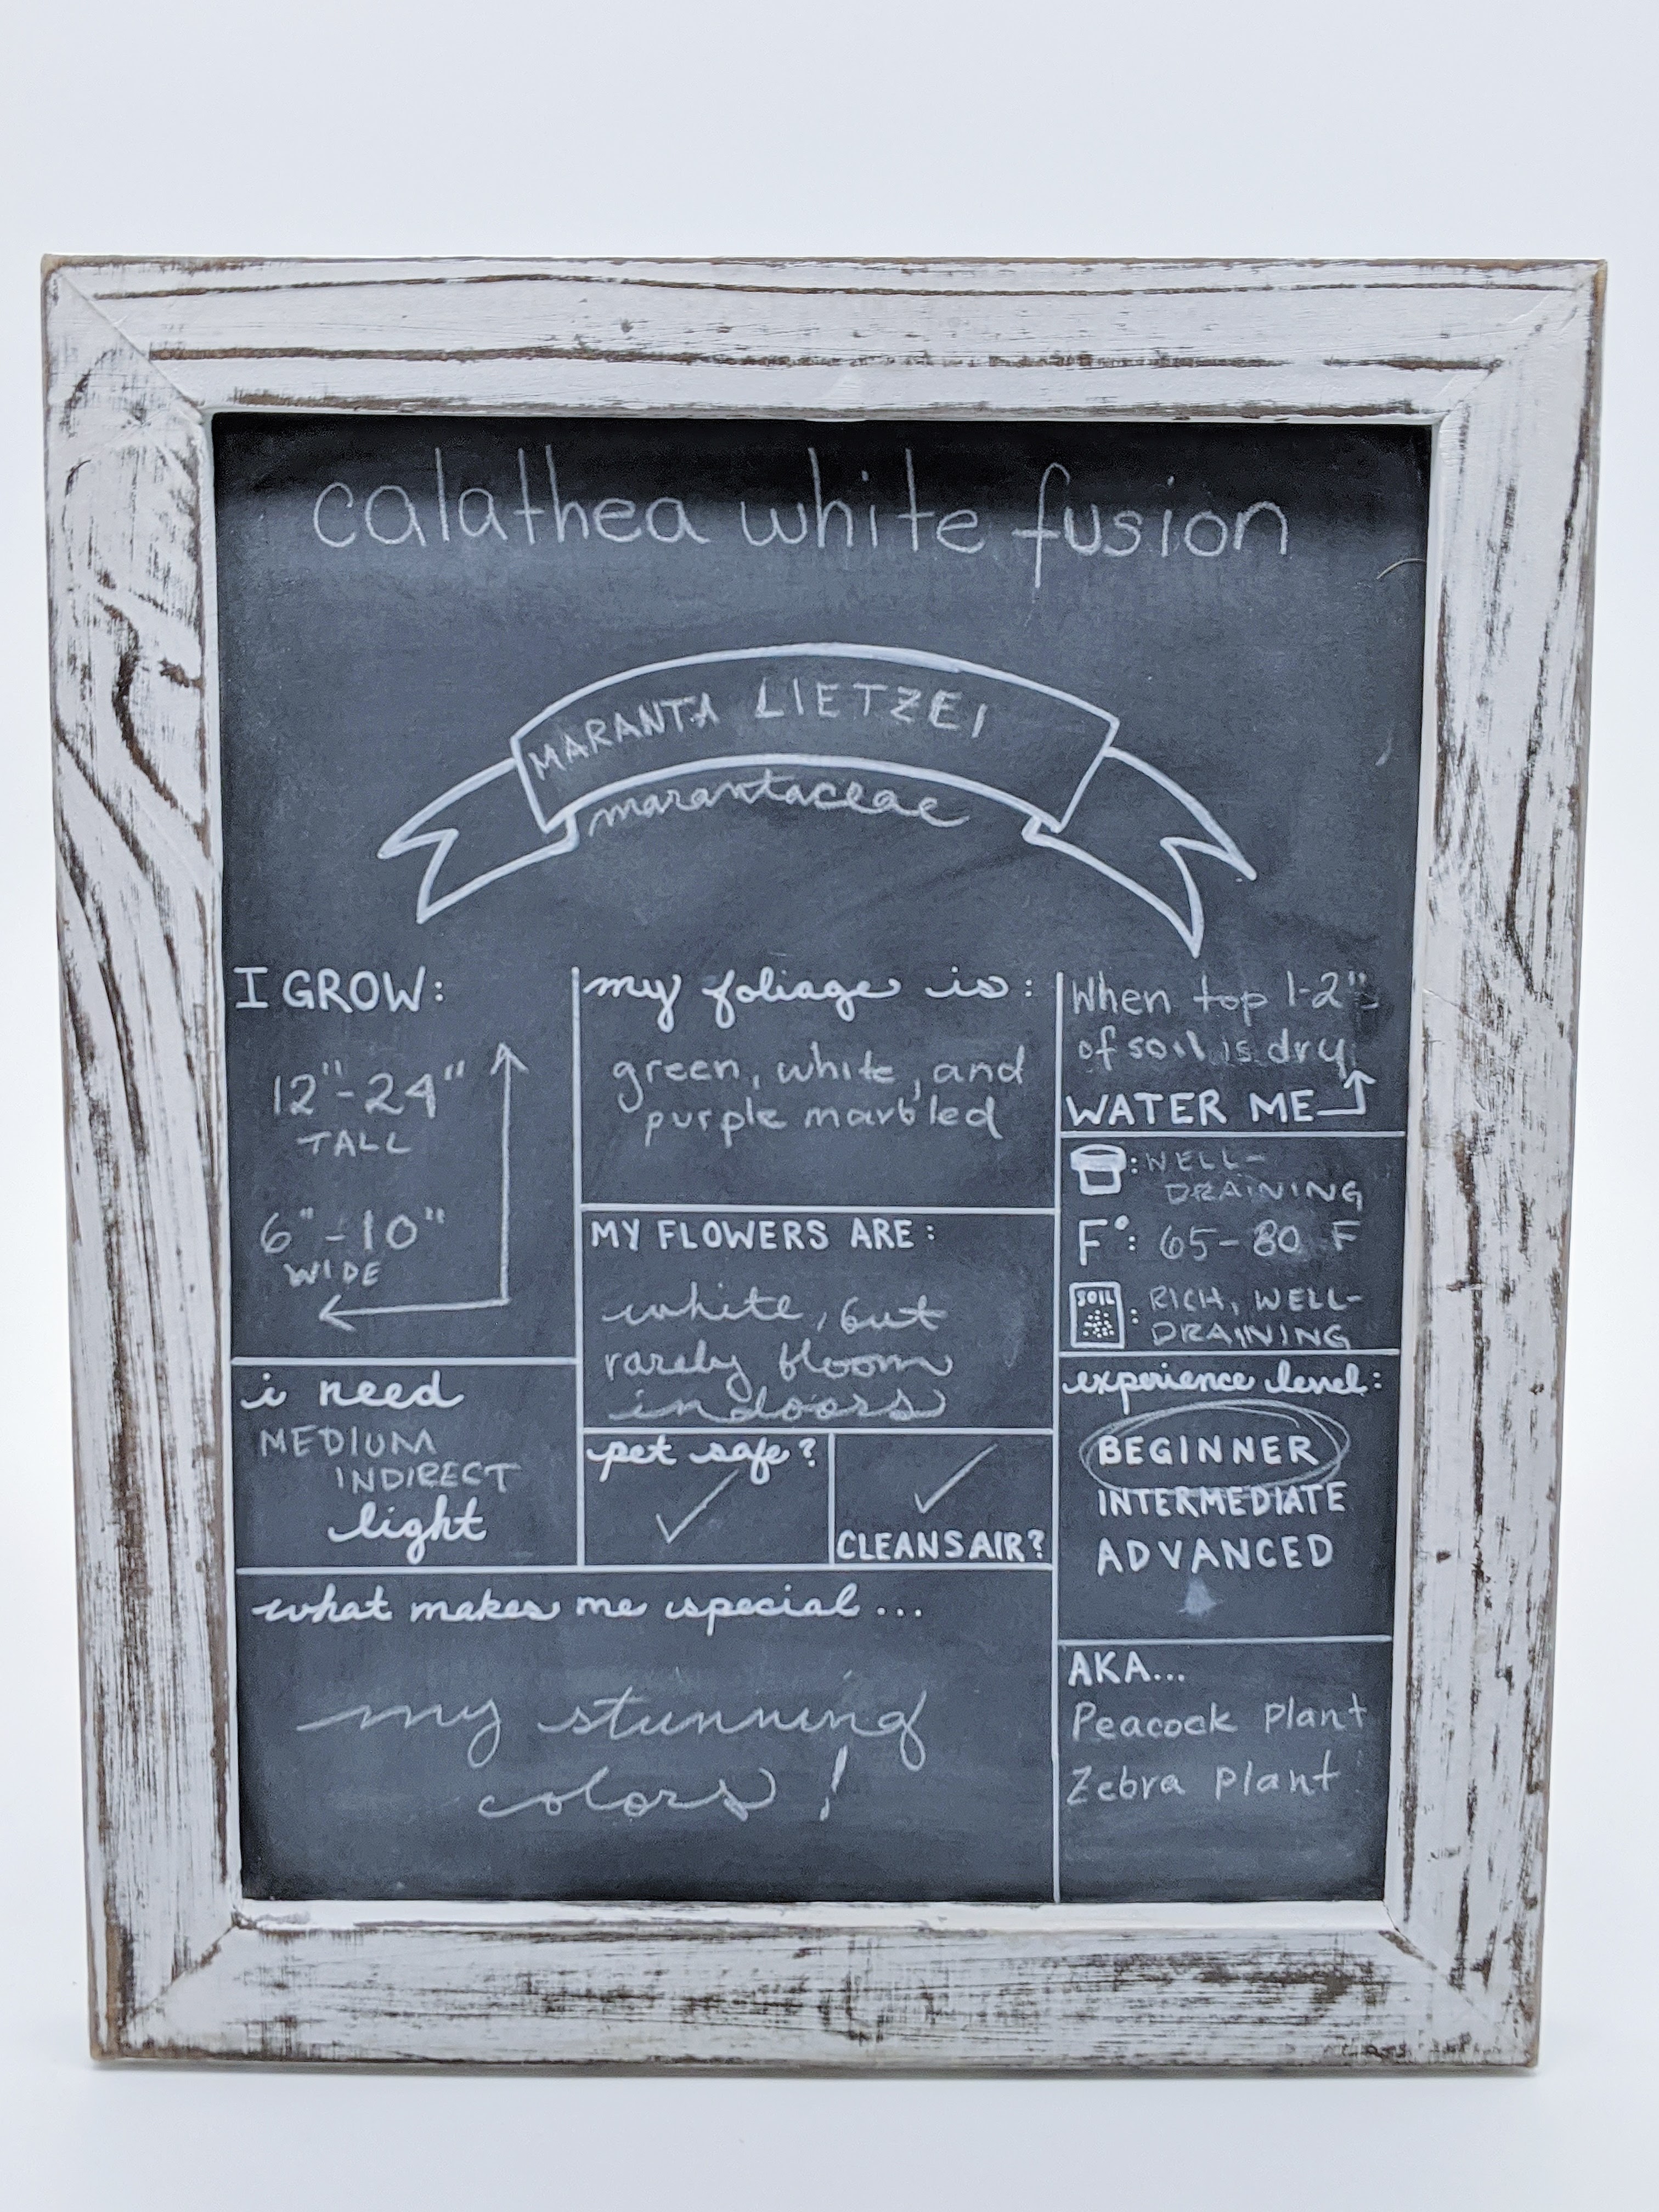 calathea white fusion
MARANTA LIETZEI
marantaceae
I GROW:
12"-24"
TALL
6"-10"
WIDE
i need
MEDIUM
INDIRECT
light
my foliage is:
green, white, and
purple marbled
MY FLOWERS ARE:
white, but
rarely bloom
indoors
pet safe?
CLEANS AIR?
what makes me special...
my stunning
colors!
When top 1-2"
of soil is dry
WATER ME
: WELL-
DRAINING
F°: 65-80 F
SOIL
: RICH, WELL-
DRAINING
experience level:
BEGINNER
INTERMEDIATE
ADVANCED
AKA...
Peacock Plant
Zebra Plant